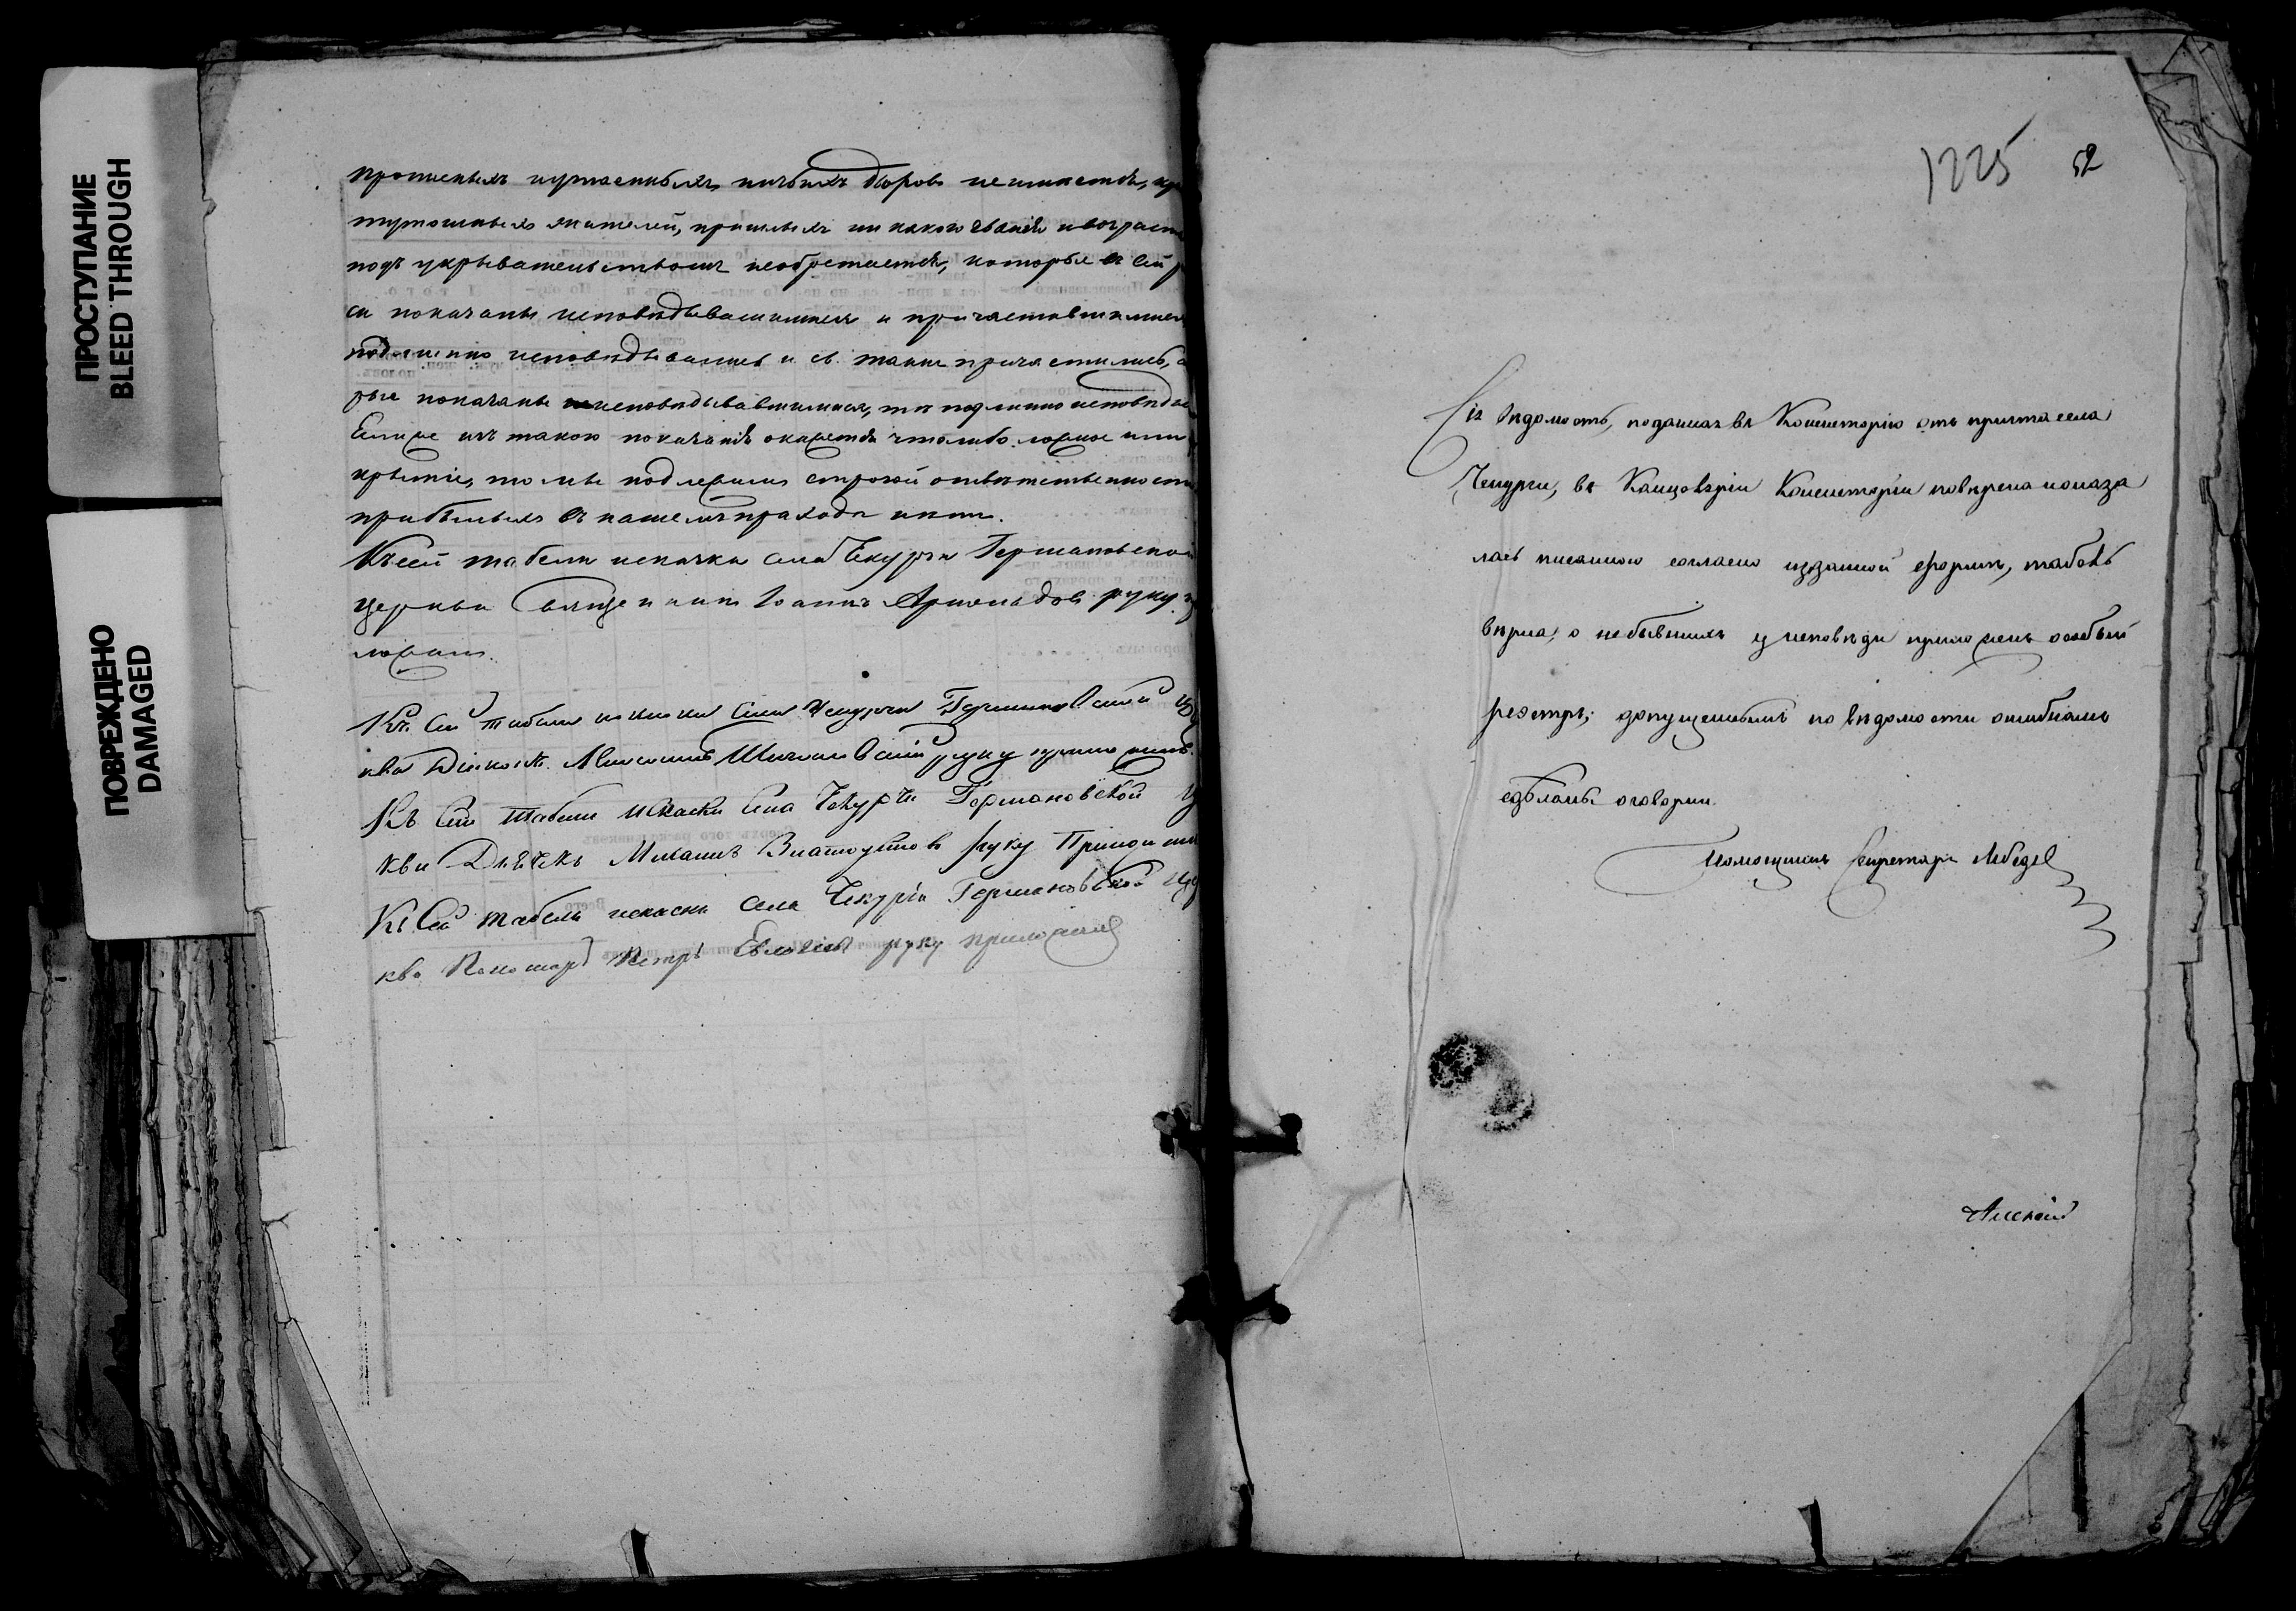 ПРОСТУПАНИЕ
BLEED THROUGH
ПОВРЕЖДЕНО
DAMAGED
дворовъ
жителей, пришлыхъ ни какого званія и возраста
подъ укрывательствомъ необретается, которые въ сей
си показаны исповѣдывавшимися и причастившимися
подлинно исповѣдывались и св. таинъ причастились,
рые показаны неисповѣдывавшимися, тѣ подлинно неисповѣдыв
Ежели изъ такого показанія окажется что либо ложное или
крытіе, то мы подлежимъ строгой отвѣтственности
прибылыхъ въ нашемъ приходѣ нѣтъ.
Къ сей табели исказки села Чекурчи Германовской
церкви Священникъ Іоаннъ руку
ложилъ.
Къ сей табели исказки села Чекурчи Германовской
кви Діаконъ руку приложилъ.
Къ сей табели исказки села Чекурчи Германовской ц
кви Дьячекъ Михаилъ Златоустовъ руку
Къ сей табели исказки села Чекурчи Германовской цер
кви Пономарь Петръ руку приложилъ
1225 52
Сія вѣдомость, поданная въ Консисторію отъ причта села
Чекурчи, въ Канцеляріи Консисторіи повѣрена и оказа
лась писанною согласно изданной формѣ, табель
вѣрна, о небывшихъ у исповѣди приложенъ особый
реэстръ; допущеннымъ по вѣдомости ошибкамъ
сдѣланы оговорки.
Помощникъ Секретаря Лебедев